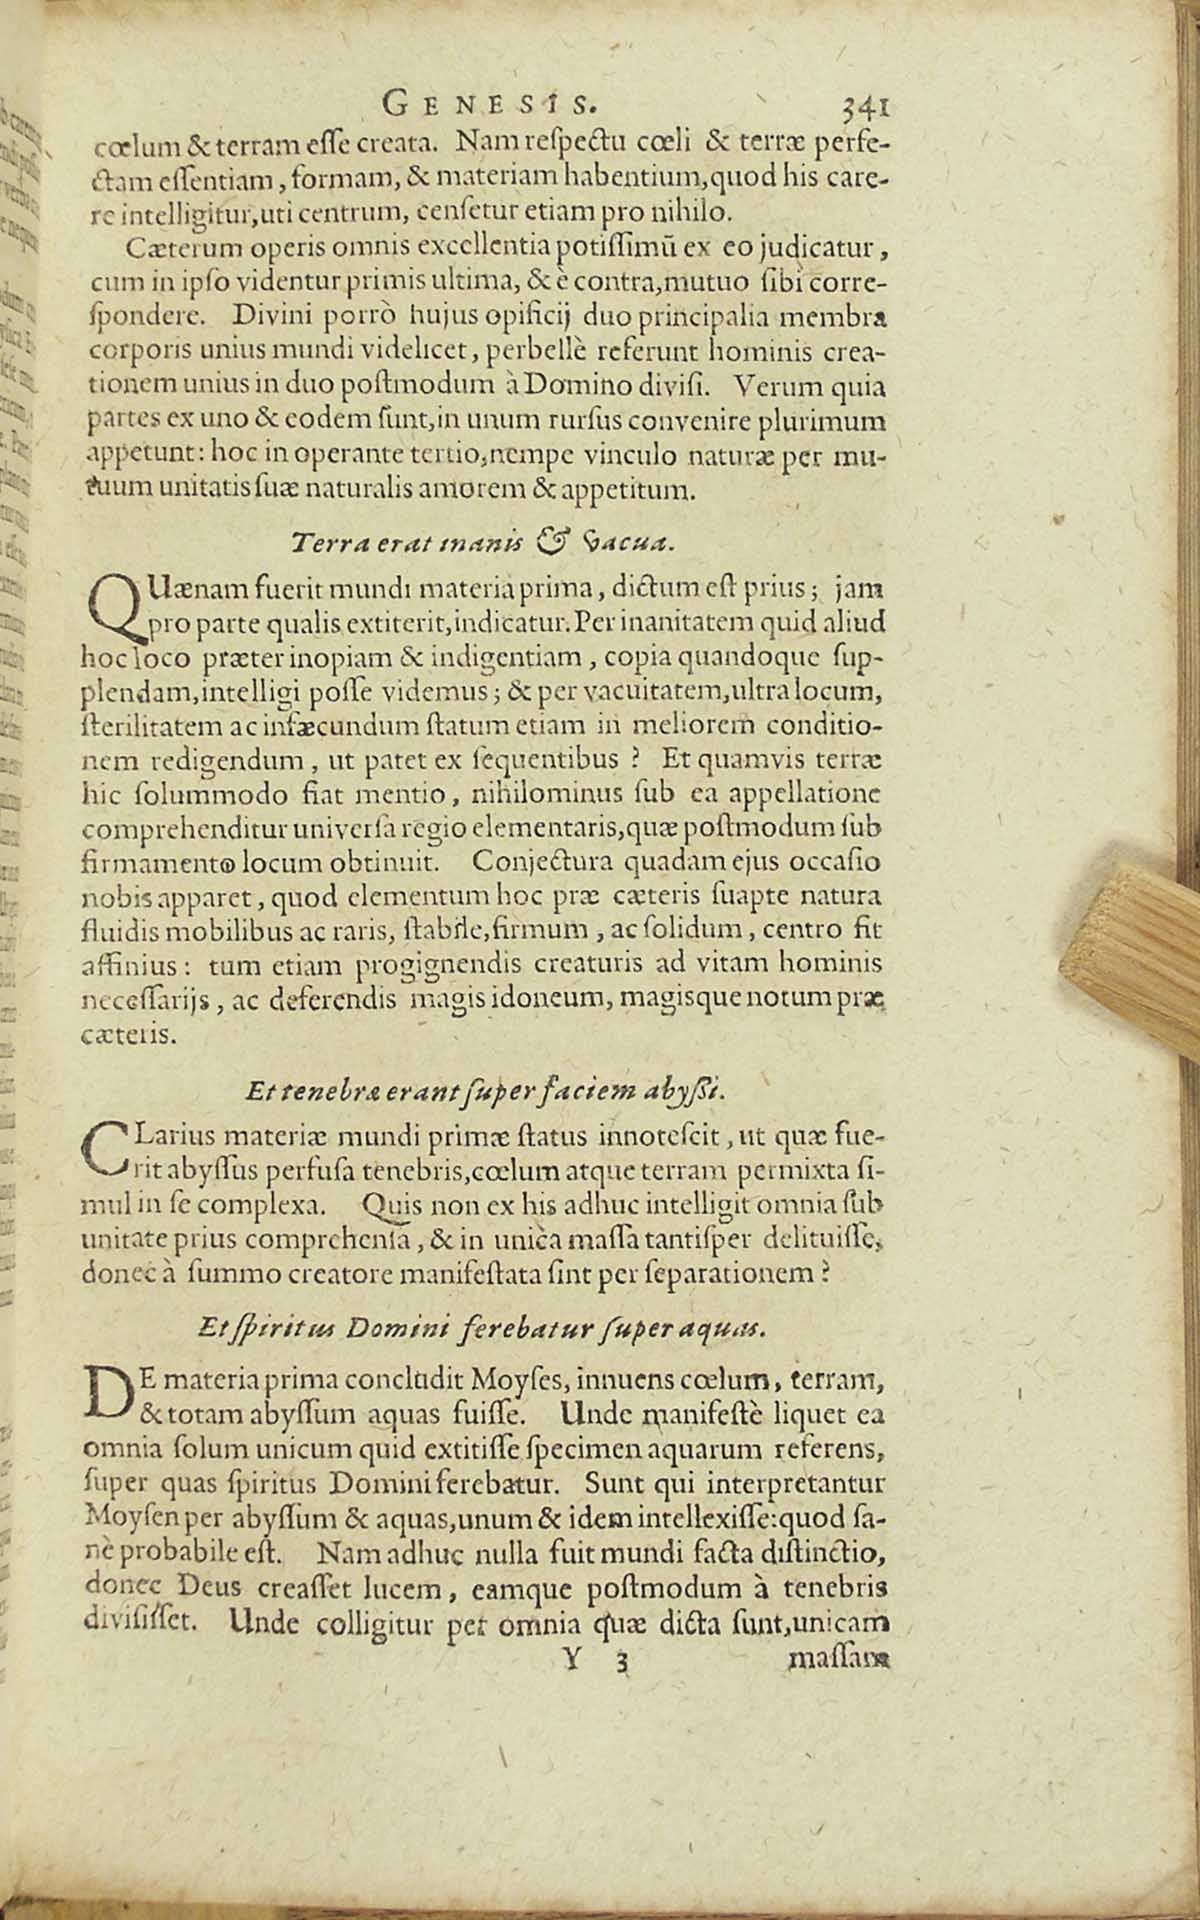 GENESIS. 341
cœlum & terram esse creata. Nam respectu cœli & terræ perfe-
ctam essentiam, formam, & materiam habentium, quod his care-
re intelligitur, uti centrum, censetur etiam pro nihilo.
Cæterum operis omnis excellentia potissimũ ex eo judicatur,
cum in ipso videntur primis ultima, & è contra, mutuo sibi corre-
spondere. Divini porrò hujus opificij duo principalia membra
corporis unius mundi videlicet, perbellè referunt hominis crea-
tionem unius in duo postmodum à Domino divisi. Verum quia
partes ex uno & eodem sunt, in unum rursus convenire plurimum
appetunt: hoc in operante tertio, nempe vinculo naturæ per mu-
tuum unitatis suæ naturalis amorem & appetitum.
Terra erat inanis & vacua.
QUænam fuerit mundi materia prima, dictum est prius; jam
pro parte qualis extiterit, indicatur. Per inanitatem quid aliud
hoc loco præter inopiam & indigentiam, copia quandoque sup-
plendam, intelligi posse videmus; & per vacuitatem, ultra locum,
sterilitatem ac infæcundum statum etiam in meliorem conditio-
nem redigendum, ut patet ex sequentibus? Et quamvis terræ
hic solummodo fiat mentio, nihilominus sub ea appellatione
comprehenditur universa regio elementaris, quæ postmodum sub
firmamento locum obtinuit. Conjectura quadam ejus occasio
nobis apparet, quod elementum hoc præ cæteris suapte natura
fluidis mobilibus ac raris, stabile, firmum, ac solidum, centro fit
affinius: tum etiam progignendis creaturis ad vitam hominis
necessarijs, ac deferendis magis idoneum, magisque notum præ
cæteris.
Et tenebræ erant super faciem abyssi.
CLarius materiæ mundi primæ status innotescit, ut quæ fue-
rit abyssus perfusa tenebris, cœlum atque terram permixta si-
mul in se complexa. Quis non ex his adhuc intelligit omnia sub
unitate prius comprehensa, & in unica massa tantisper delituisse,
donec à summo creatore manifestata sint per separationem?
Et spiritus Domini ferebatur super aquas.
DE materia prima concludit Moyses, innuens cœlum, terram,
& totam abyssum aquas fuisse. Unde manifestè liquet ea
omnia solum unicum quid extitisse specimen aquarum referens,
super quas spiritus Domini ferebatur. Sunt qui interpretantur
Moysen per abyssum & aquas, unum & idem intellexisse: quod sa-
nè probabile est. Nam adhuc nulla fuit mundi facta distinctio,
donec Deus creasset lucem, eamque postmodum à tenebris
divisisset. Unde colligitur per omnia quæ dicta sunt, unicam
Y 3 massam